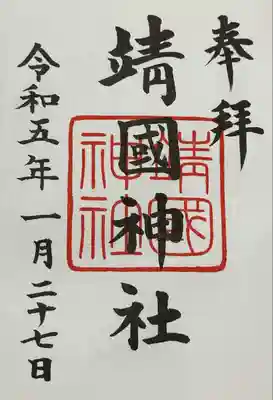 奉拝
靖國神社
靖國
神社
令和五年一月二十七日